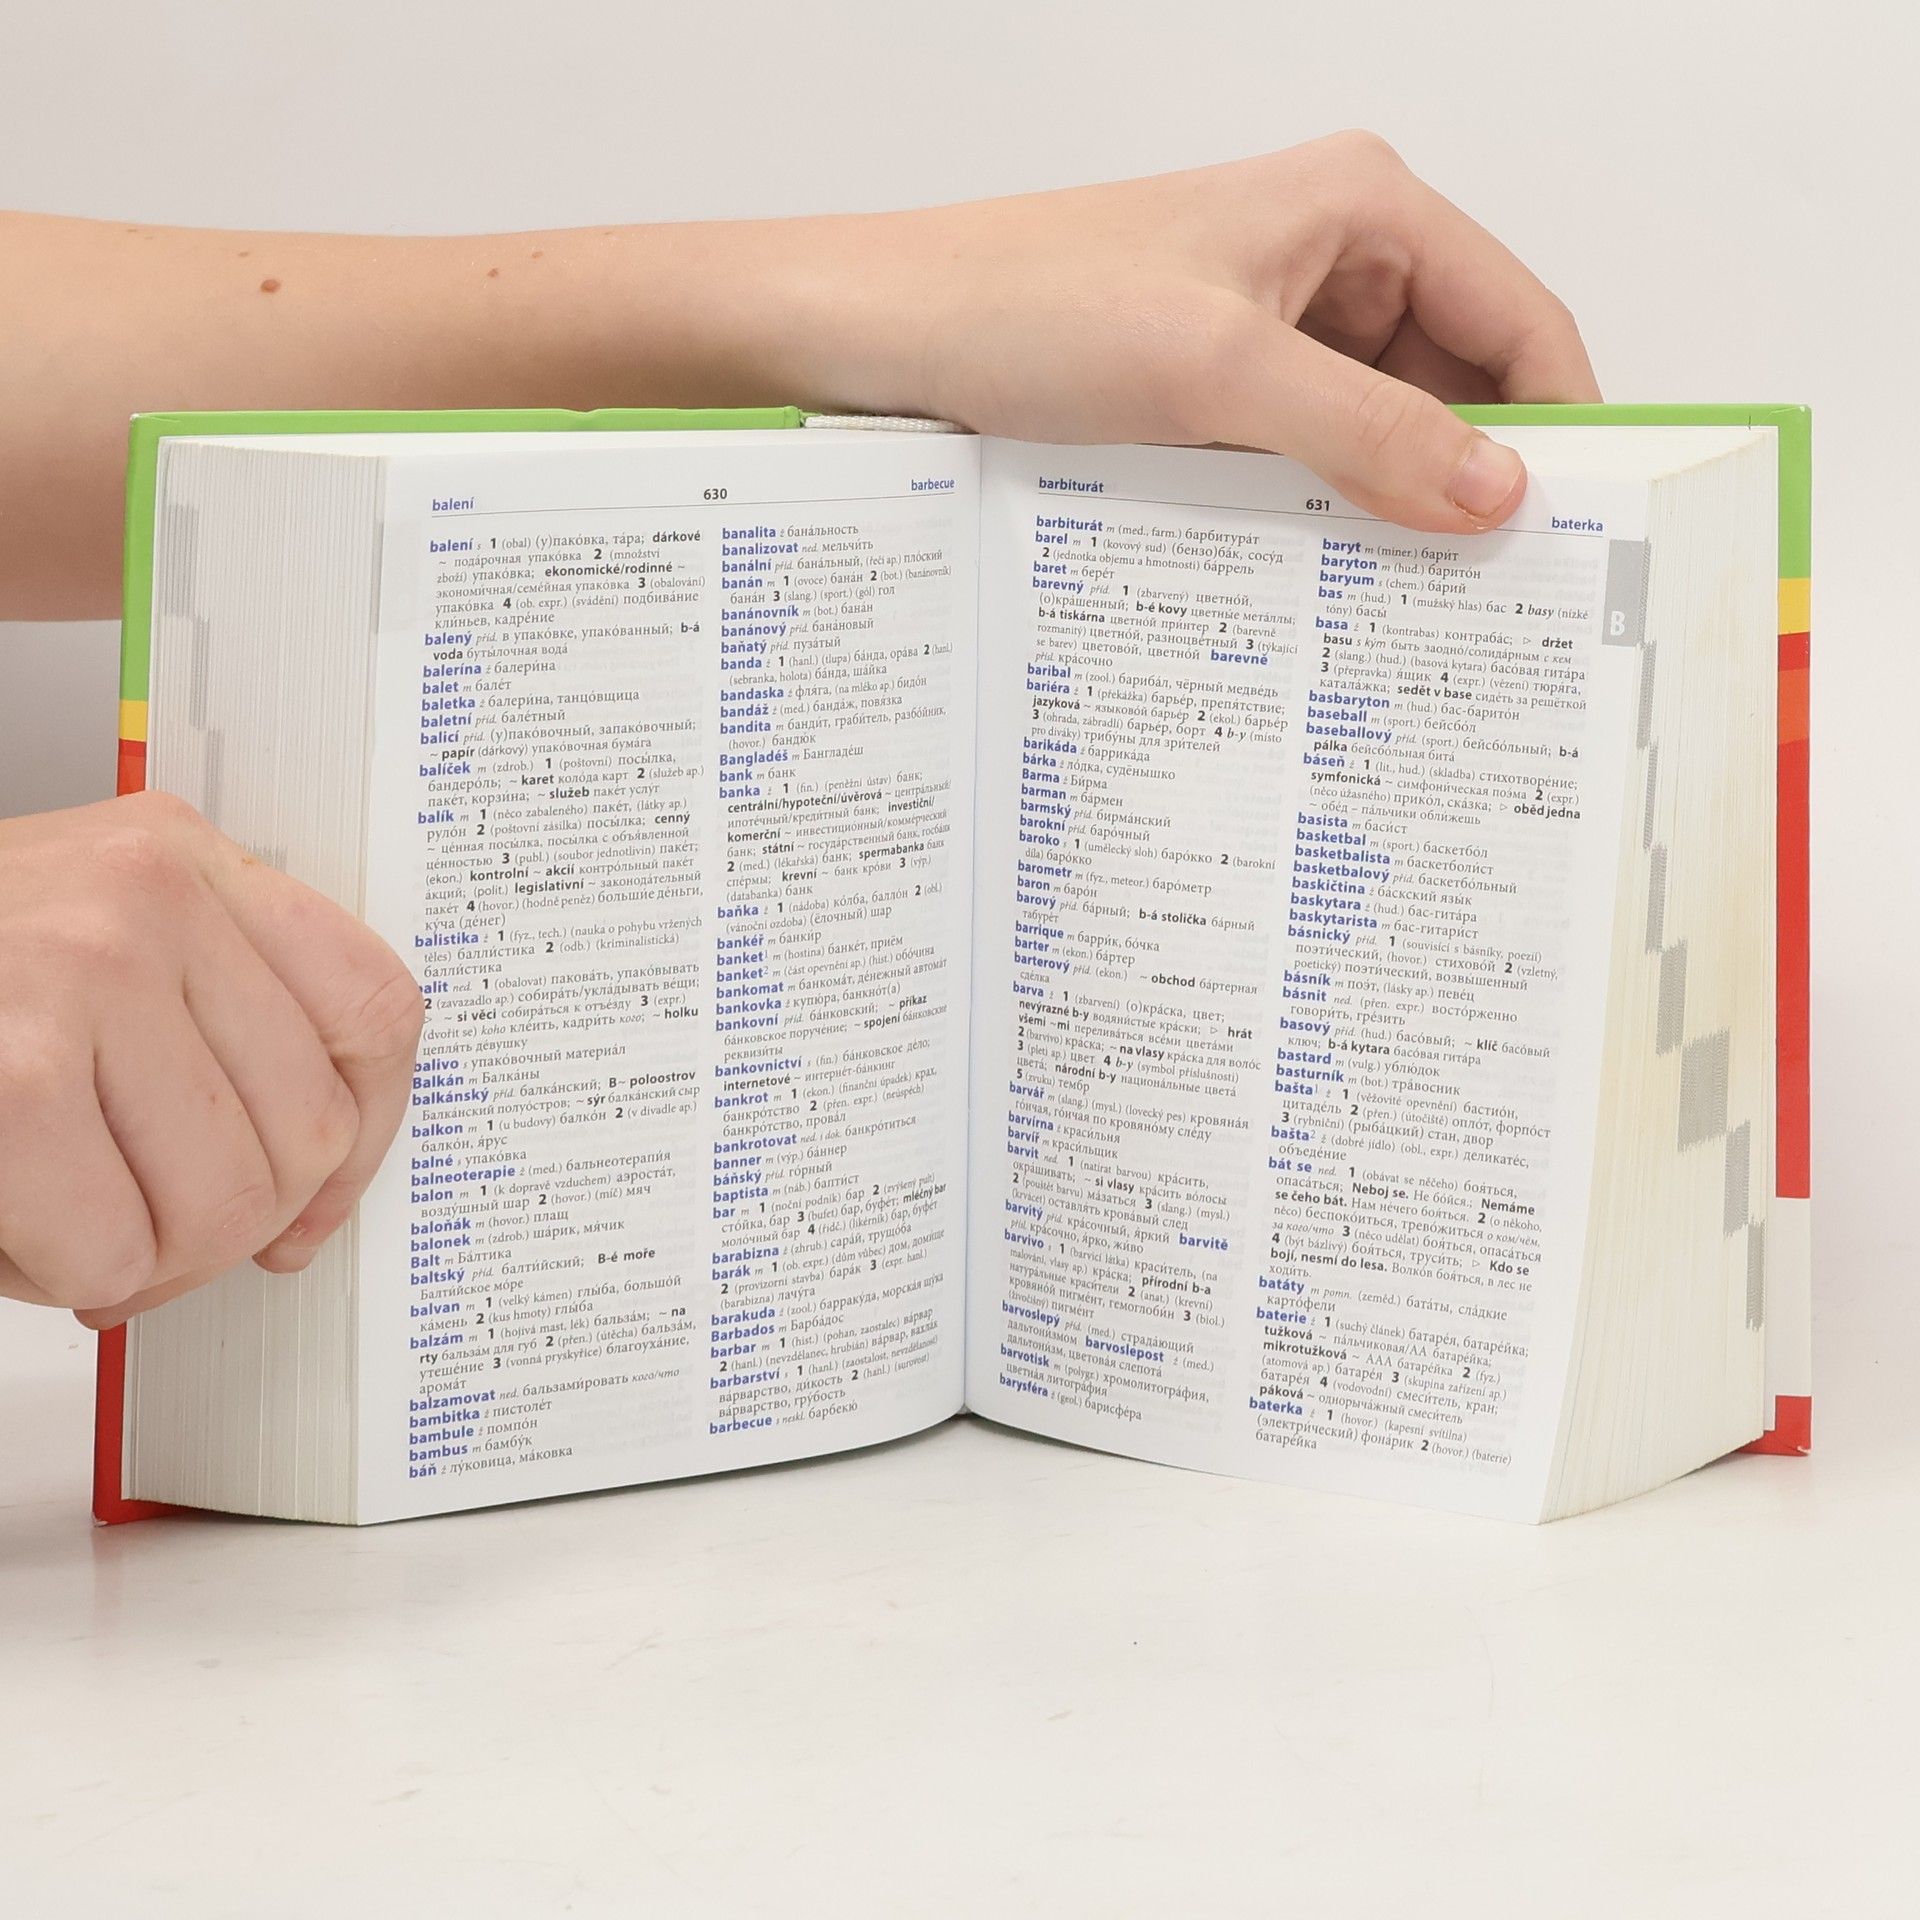 balení 630 barbecue
balení s 1 (obal) (у)пако́вка, та́ра; dárkové
~ пода́рочная упако́вка 2 (množství
zboží) упако́вка; ekonomické/rodinné ~
экономи́чная/семе́йная упако́вка 3 (obalování)
упако́вка 4 (ob. expr.) (svádění) подбива́ние
кли́ньев, кадре́ние
balený příd. в упако́вке, упако́ванный; b-á
voda буты́лочная вода́
balerína ž балери́на
balet m бале́т
baletka ž балери́на, танцо́вщица
baletní příd. бале́тный
balicí příd. (у)пако́вочный, запако́вочный;
~ papír (dárkový) упако́вочная бума́га
balíček m (zdrob.) 1 (poštovní) посы́лка,
бандеро́ль; ~ karet коло́да карт 2 (služeb ap.)
паке́т, корзи́на; ~ služeb паке́т услу́г
balík m 1 (něco zabaleného) паке́т, (látky ap.)
руло́н 2 (poštovní zásilka) посы́лка; cenný
~ це́нная посы́лка, посы́лка с объя́вленной
це́нностью 3 (publ.) (soubor jednotlivin) паке́т;
(ekon.) kontrolní ~ akcií контро́льный паке́т
а́кций; (polit.) legislativní ~ законода́тельный
паке́т 4 (hovor.) (hodně peněz) больши́е де́ньги,
ку́ча (де́нег)
balistika ž 1 (fyz., tech.) (nauka o pohybu vržených
těles) балли́стика 2 (odb.) (kriminalistická)
балли́стика
balit ned. 1 (obalovat) пакова́ть, упако́вывать
2 (zavazadlo ap.) собира́ть/укла́дывать ве́щи;
▷ ~ si věci собира́ться к отъе́зду 3 (expr.)
(dvořit se) koho кле́ить, кадри́ть кого; ~ holku
цепля́ть де́вушку
balivo s упако́вочный материа́л
Balkán m Балка́ны
balkánský příd. балка́нский; B~ poloostrov
Балка́нский полуо́стров; ~ sýr балка́нский сыр
balkon m 1 (u budovy) балко́н 2 (v divadle ap.)
балко́н, я́рус
balné s упако́вка
balneoterapie ž (med.) бальнеотерапи́я
balon m 1 (k dopravě vzduchem) аэроста́т,
возду́шный шар 2 (hovor.) (míč) мяч
baloňák m (hovor.) плащ
balonek m (zdrob.) ша́рик, мя́чик
Balt m Ба́лтика
baltský příd. балти́йский; B-é moře
Балти́йское мо́ре
balvan m 1 (velký kámen) глы́ба, большо́й
ка́мень 2 (kus hmoty) глы́ба
balzám m 1 (hojivá mast, lék) бальза́м; ~ na
rty бальза́м для губ 2 (přen.) (útěcha) бальза́м,
утеше́ние 3 (vonná pryskyřice) благоуха́ние,
арома́т
balzamovat ned. бальзами́ровать кого/что
bambitka ž пистоле́т
bambule ž помпо́н
bambus m бамбу́к
báň ž лу́ковица, ма́ковка
banalita ž бана́льность
banalizovat ned. мельчи́ть
banální příd. бана́льный, (řeči ap.) пло́ский
banán m 1 (ovoce) бана́н 2 (bot.) (banánovník)
бана́н 3 (slang.) (sport.) (gól) гол
banánovník m (bot.) бана́н
banánový příd. бана́новый
baňatý příd. пуза́тый
banda ž 1 (hanl.) (tlupa) ба́нда, ора́ва 2 (hanl.)
(sebranka, holota) ба́нда, ша́йка
bandaska ž фля́га, (na mléko ap.) бидо́н
bandáž ž (med.) банда́ж, повя́зка
bandita m банди́т, граби́тель, разбо́йник,
(hovor.) бандю́к
Bangladéš m Бангладе́ш
bank m банк
banka ž 1 (fin.) (peněžní ústav) банк;
centrální/hypoteční/úvěrová ~ центра́льный/
ипоте́чный/креди́тный банк; investiční/
komerční ~ инвестицио́нный/комме́рческий
банк; státní ~ госуда́рственный банк, госба́нк
2 (med.) (lékařská) банк; spermabanka банк
спе́рмы; krevní ~ банк кро́ви 3 (výp.)
(databanka) банк
baňka ž 1 (nádoba) ко́лба, балло́н 2 (obl.)
(vánoční ozdoba) (ёлочный) шар
bankéř m банки́р
banket¹ m (hostina) банке́т, приём
banket² m (část opevnění ap.) (hist.) обо́чина
bankomat m банкома́т, де́нежный автома́т
bankovka ž купю́ра, банкно́т(а)
bankovní příd. ба́нковский; ~ příkaz
ба́нковское поруче́ние; ~ spojení ба́нковские
реквизи́ты
bankovnictví s (fin.) ба́нковское де́ло;
internetové ~ интерне́т-ба́нкинг
bankrot m 1 (ekon.) (finanční úpadek) крах,
банкро́тство 2 (přen. expr.) (neúspěch)
банкро́тство, прова́л
bankrotovat ned. i dok. банкро́титься
banner m (výp.) ба́ннер
báňský příd. го́рный
baptista m (náb.) бапти́ст
bar m 1 (noční podnik) бар 2 (zvýšený pult)
сто́йка, бар 3 (bufet) бар, буфе́т; mléčný bar
моло́чный бар 4 (řidč.) (likérník) бар, буфе́т
barabizna ž (zhrub.) сара́й, трущо́ба
barák m 1 (ob. expr.) (dům vůbec) дом, доми́ще
2 (provizorní stavba) бара́к 3 (expr. hanl.)
(barabizna) лачу́га
barakuda ž (zool.) барраку́да, морска́я щу́ка
Barbados m Барба́дос
barbar m 1 (hist.) (pohan, zaostalec) ва́рвар
2 (hanl.) (nevzdělanec, hrubián) ва́рвар, вахла́к
barbarství s 1 (hanl.) (zaostalost, nevzdělanost)
ва́рварство, ди́кость 2 (hanl.) (surovost)
ва́рварство, гру́бость
barbecue s neskl. барбекю́
barbiturát 631 baterka
barbiturát m (med., farm.) барбитура́т
barel m 1 (kovový sud) (бензо)ба́к, сосу́д
2 (jednotka objemu a hmotnosti) ба́ррель
baret m бере́т
barevný příd. 1 (zbarvený) цветно́й,
(о)кра́шенный; b-é kovy цветны́е мета́ллы;
b-á tiskárna цветно́й при́нтер 2 (barevně
rozmanitý) цветно́й, разноцве́тный 3 (týkající
se barev) цветово́й, цветно́й barevně
přísl. кра́сочно
baribal m (zool.) бариба́л, чёрный медве́дь
bariéra ž 1 (překážka) барье́р, препя́тствие;
jazyková ~ языково́й барье́р 2 (ekol.) барье́р
3 (ohrada, zábradlí) барье́р, борт 4 b-y (místo
pro diváky) трибу́ны для зри́телей
barikáda ž баррика́да
bárka ž ло́дка, судёнышко
Barma ž Би́рма
barman m ба́рмен
barmský příd. бирма́нский
barokní příd. баро́чный
baroko s 1 (umělecký sloh) баро́кко 2 (barokní
díla) баро́кко
barometr m (fyz., meteor.) баро́метр
baron m баро́н
barový příd. ба́рный; b-á stolička ба́рный
табуре́т
barrique m ба́ррик, бо́чка
barter m (ekon.) ба́ртер
barterový příd. (ekon.) ~ obchod ба́ртерная
сде́лка
barva ž 1 (zbarvení) (о)кра́ска, цвет;
nevýrazné b-y водяни́стые кра́ски; ▷ hrát
všemi ~mi перелива́ться все́ми цвета́ми
2 (barvivo) кра́ска; ~ na vlasy кра́ска для воло́с
3 (pleti ap.) цвет 4 b-y (symbol příslušnosti)
цвета́; národní b-y национа́льные цвета́
5 (zvuku) тембр
barvář m (slang.) (mysl.) (lovecký pes) кровяна́я
го́нчая, го́нчая по кровяно́му сле́ду
barvírna ž краси́льня
barvíř m краси́льщик
barvit ned. 1 (natírat barvou) кра́сить,
окра́шивать; ~ si vlasy кра́сить во́лосы
2 (pouštět barvu) ма́заться 3 (slang.) (mysl.)
(krvácet) оставля́ть крова́вый след
barvitý příd. кра́сочный, я́ркий barvitě
přísl. кра́сочно, я́рко, жи́во
barvivo s 1 (barvicí látka) краси́тель, (na
malování, vlasy ap.) кра́ска; přírodní b-a
натура́льные краси́тели 2 (anat.) (krevní)
кровяно́й пигме́нт, гемоглоби́н 3 (biol.)
(živočišný) пигме́нт
barvoslepý příd. (med.) страда́ющий
дальтони́змом barvoslepost ž (med.)
дальтони́зм, цветова́я слепота́
barvotisk m (polygr.) хромолитогра́фия,
цветна́я литогра́фия
barysféra ž (geol.) барисфе́ра
baryt m (miner.) бари́т
baryton m (hud.) барито́н
baryum s (chem.) ба́рий
bas m (hud.) 1 (mužský hlas) бас 2 basy (nízké
tóny) басы́
basa ž 1 (kontrabas) контраба́с; ▷ držet
basu s kým быть заодно́/солида́рным с кем
2 (slang.) (hud.) (basová kytara) басо́вая гита́ра
3 (přepravka) я́щик 4 (expr.) (vězení) тюря́га,
катала́жка; sedět v base сиде́ть за решёткой
basbaryton m (hud.) бас-барито́н
baseball m (sport.) бейсбо́л
baseballový příd. (sport.) бейсбо́льный; b-á
pálka бейсбо́льная бита́
báseň ž 1 (lit., hud.) (skladba) стихотворе́ние;
symfonická ~ симфони́ческая поэ́ма 2 (expr.)
(něco úžasného) прико́л, ска́зка; ▷ oběd jedna
~ обе́д – па́льчики обли́жешь
basista m баси́ст
basketbal m (sport.) баскетбо́л
basketbalista m баскетболи́ст
basketbalový příd. баскетбо́льный
baskičtina ž ба́скский язы́к
baskytara ž (hud.) бас-гита́ра
baskytarista m бас-гитари́ст
básnický příd. 1 (souvisící s básníky, poezií)
поэти́ческий, (hovor.) стихово́й 2 (vzletný,
poetický) поэти́ческий, возвы́шенный
básník m поэ́т, (lásky ap.) певе́ц
básnit ned. (přen. expr.) восто́рженно
говори́ть, гре́зить
basový příd. (hud.) басо́вый; ~ klíč басо́вый
ключ; b-á kytara басо́вая гита́ра
bastard m (vulg.) ублю́док
basturník m (bot.) тра́восник
bašta¹ ž 1 (věžovité opevnění) бастио́н,
цитаде́ль 2 (přen.) (útočiště) опло́т, форпо́ст
3 (rybniční) (рыба́цкий) стан, двор
bašta² ž (dobré jídlo) (obl., expr.) деликате́с,
объеде́ние
bát se ned. 1 (obávat se něčeho) боя́ться,
опаса́ться; Neboj se. Не бо́йся.; Nemáme
se čeho bát. Нам не́чего боя́ться. 2 (o někoho,
něco) беспоко́иться, трево́житься о ком/чём,
за кого/что 3 (něco udělat) боя́ться, опаса́ться
4 (být bázlivý) боя́ться, тру́сить; ▷ Kdo se
bojí, nesmí do lesa. Волко́в боя́ться, в лес не
ходи́ть.
batáty m pomn. (zeměd.) бата́ты, сла́дкие
карто́фели
baterie ž 1 (suchý článek) батаре́я, батаре́йка;
tužková ~ па́льчиковая/АА батаре́йка;
mikrotužková ~ ААА батаре́йка 2 (fyz.)
(atomová ap.) батаре́я 3 (skupina zařízení ap.)
батаре́я 4 (vodovodní) смеси́тель, кран;
páková ~ однорыча́жный смеси́тель
baterka ž 1 (hovor.) (kapesní svítilna)
(электри́ческий) фона́рик 2 (hovor.) (baterie)
батаре́йка
B